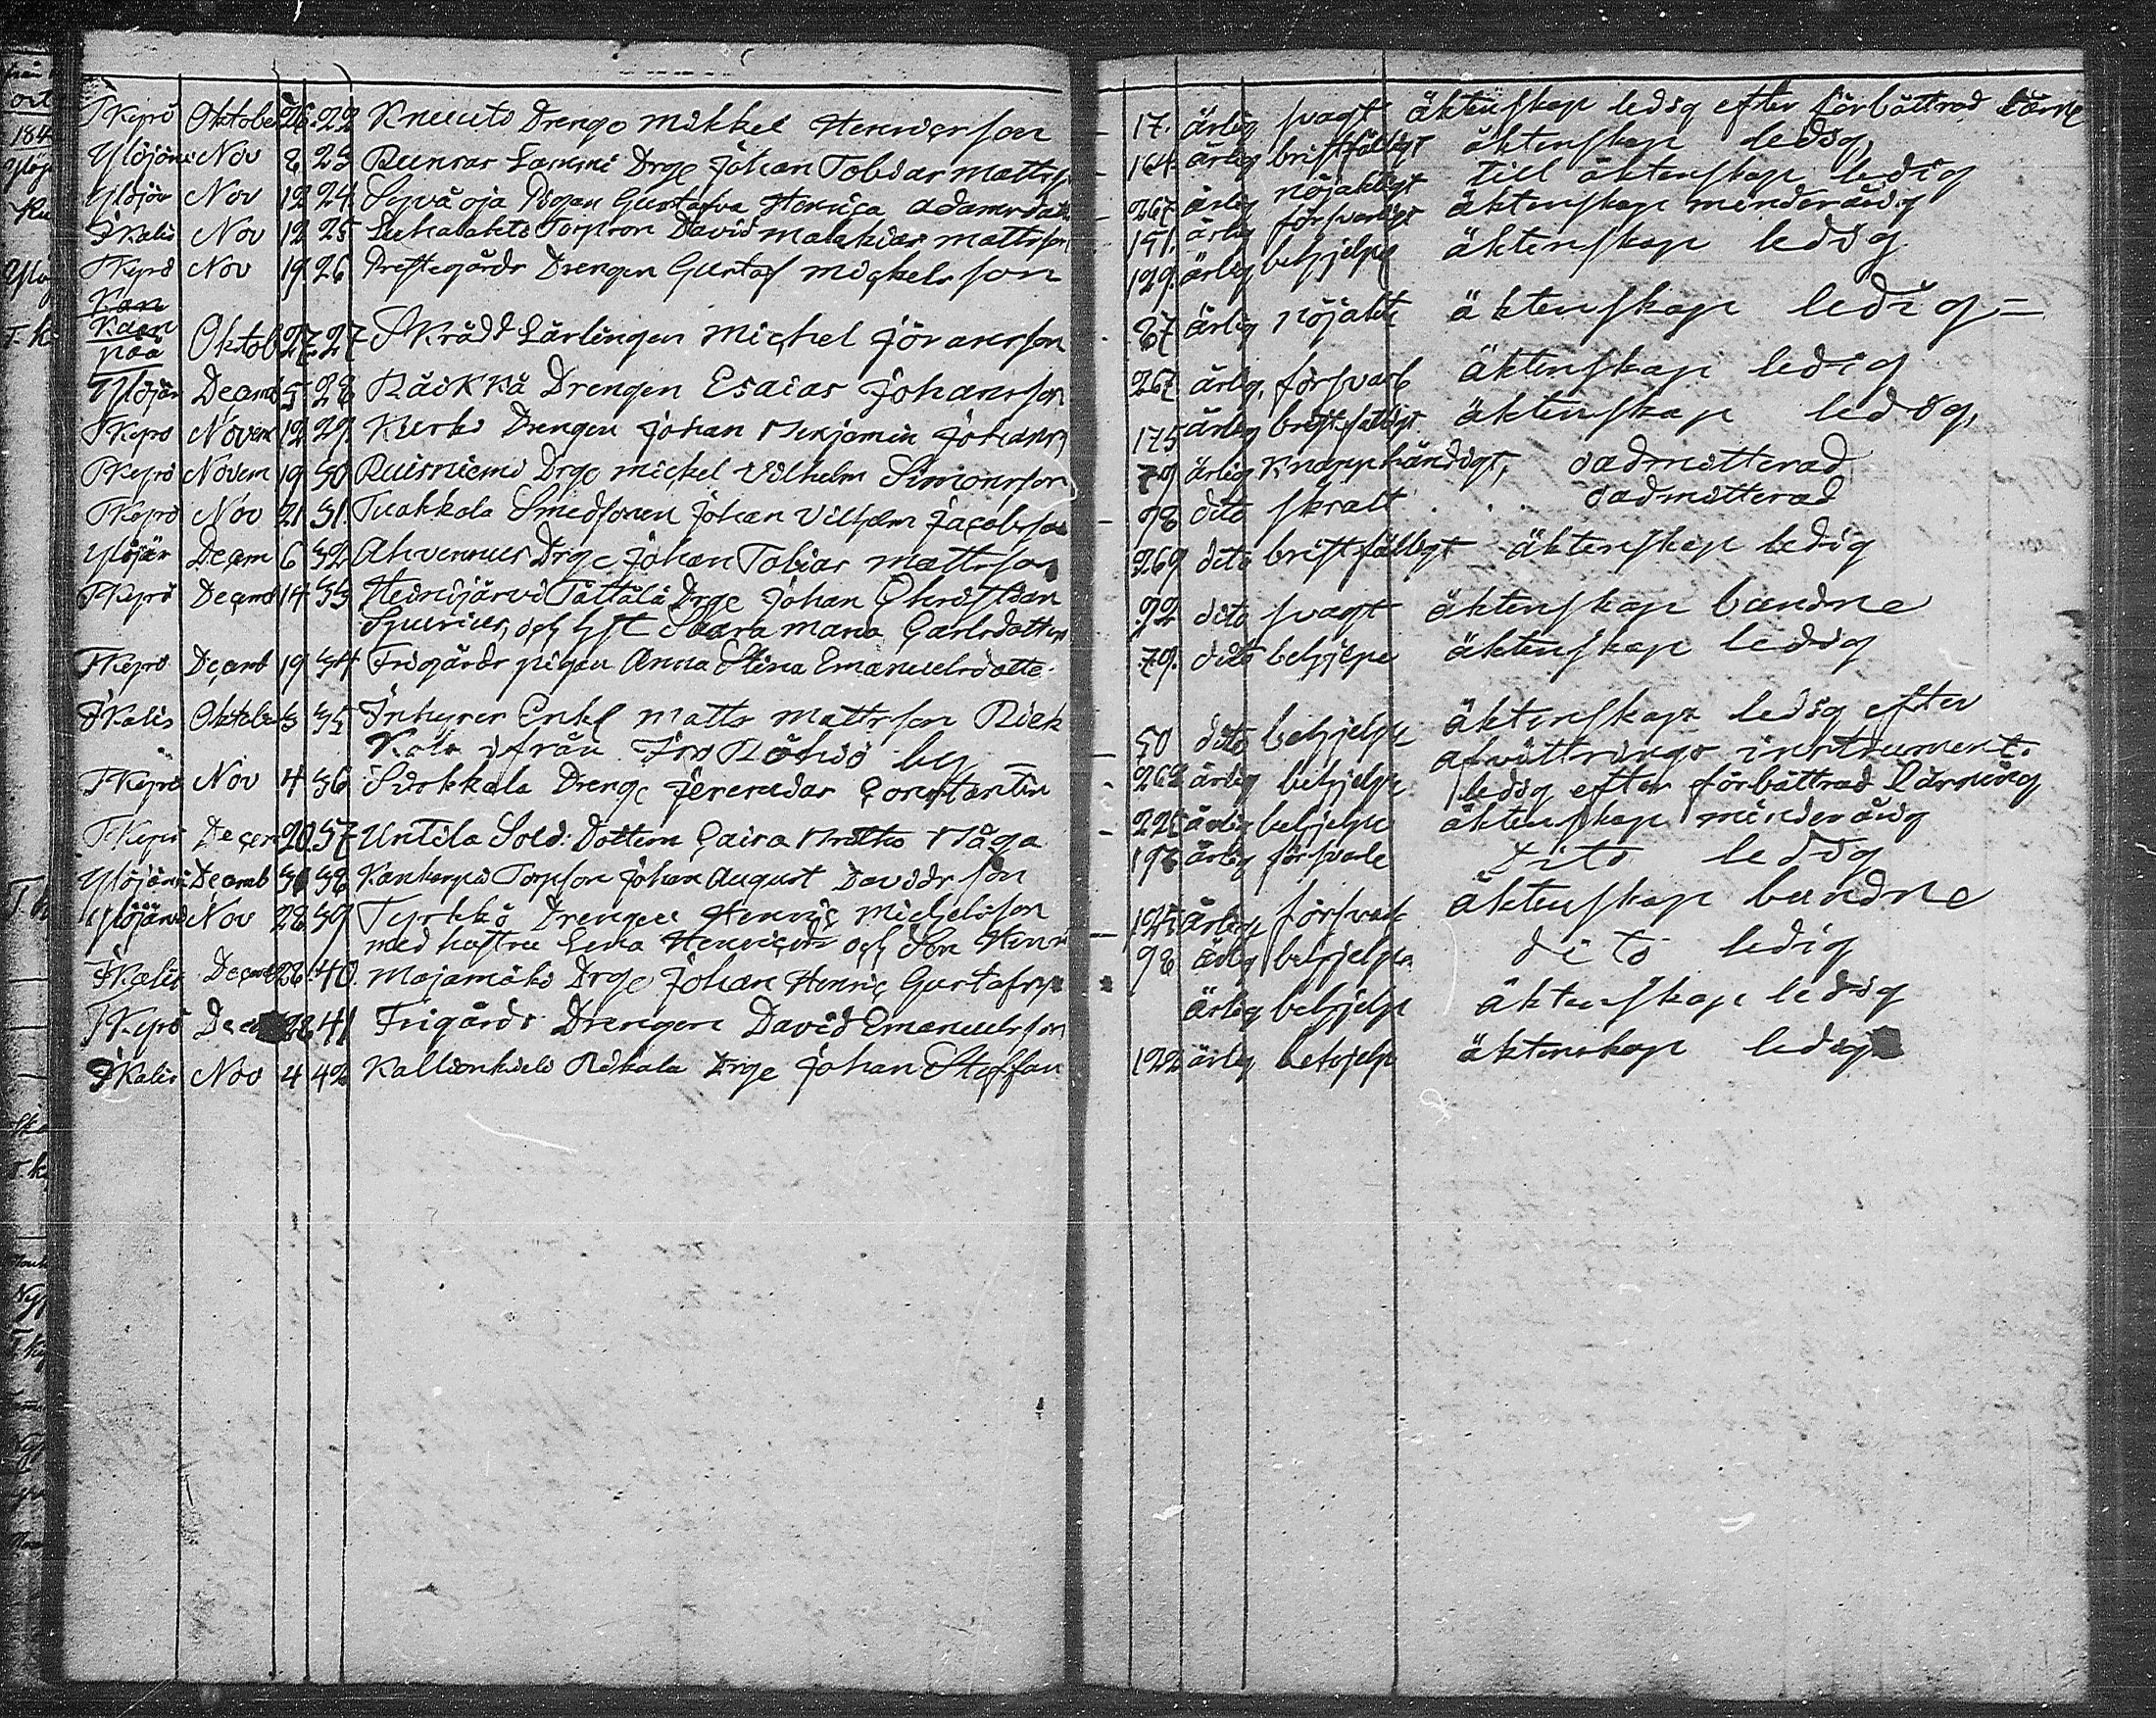 TKyrö Oktober 26. 22 Knuuts Drenge Mikkel Henricsson
Ylöjärvi Nov 8 23 Runsas Lammi Drge Johan Tobias Mattsson
Ylöjär Nov 12 24 Syvä oja Pigan Gustafva Henrica Adamsdatt
Ikalis Nov 12 25 Torpson David Malakias Mattsson
TKyrö Nov 19. 26 Prestegårds Drengen Gustaf Mickelsson
Kan
Kaen
pää Oktob 27. 27 Skrädd Lärlingen Michel Jöransson
Ylöjär Decemb 5 28 Räikkä Drengen Esaias Johansson
TKyrö Novem 12 29. Kurki Drengen Johan Benjamin Johanss
TKyrö Novem 19 30 Ruisniemi Drge Mickel Vilhelm Simonsson
TKyrö Nov 21 31. Tuokkola Smedsonen Johan Vilhelm Jacobsson
Ylöjär Decem 6 32 Ahvennus Drge Johan Tobias Mattsson
TKyrö Decemb 14 33 Heinijärvi Pättälä Drge Johan Christian
och Hst Saara Maria Carlsdotter
TKyrö Decemb 19 34 Frigårds pigan Anna Stina Emanuelsdotte
Ikalis Oktober 3 35 Inhyses Enkl Matts Mattsson Riek
Kola ifrån by
TKyrö Nov 4 36 Sirkkala Drenge Jeremias Constantin
TKyrö Decem 20. 37 Untila Sold: Dottern Caisa
Ylöjärvi Decemb 31 38 Kankarpä Torpson Johan August Davidsson
Ylöjärvi Nov 28 39 Tyrkkö Drengen Henric Michelsson
med hustru Lena Henricsdr och Son Henri
Ikalis Decemb 28. 40. Majamäki Drge Johan Henric Gustafsson
TKyrö Dec 28 41 Frigårds Drengen David Emanuelsson
Ikalis Nov 4 42 Rikala Drge Johan Steffan
17. ärlig svagt äktenskap ledig efter förbättrad
164. ärlig bristfälligt äktenskap ledig,
267 ärlig nöjaktigt till äktenskap ledig
151. ärlig försvarligt äktenskap minderårig
129. ärlig behjelpl äktenskap ledig
87 ärlig nöjakti äktenskap ledig –
267 ärlig, försvarl äktenskap ledig
175 ärlig bristfälligt äktenskap ledig,
79 ärlig knapphändigt, oadmitterad
98 dito skralt . . . oadmitterad
269 dito bristfälligt äktenskap ledig
92 dito svagt äktenskap bundne
79. dito behjelpl äktenskap ledig
50 dito behjelpl äktenskap ledig efter
afvittrings instrument.
262 ärlig behjelpl ledig efter förbättrad Läsning
226 ärlig behjelpl äktenskap minderårig
198 ärlig försvarl Dito ledig
125 ärlige försvarl äktenskap bundne
98 ärlig behjelpl dito ledig
ärlig behjelpl äktenskap ledig
122 ärlig behjelp äktenskap ledig